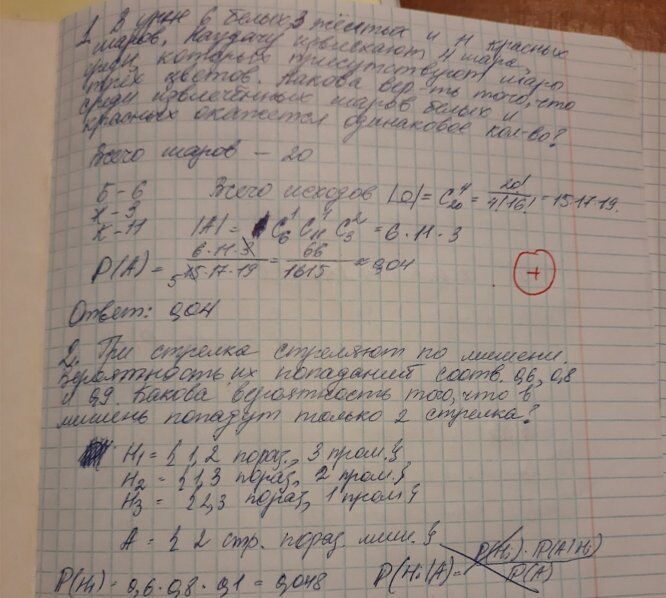 1. В урне 6 белых, 3 жёлтых и 11 красных
шаров. Наудачу извлекают 4 шара,
среди которых присутствуют шары
трёх цветов. Какова вер-ть того, что
среди извлечённых шаров белых и
красных окажется одинаковое кол-во?
Всего шаров - 20
Б - 6
Ж - 3
К - 11
Всего исходов |Ω| = C₂₀⁴ = 20!/4!16! = 15·17·19.
|A| = C₆¹ C₁₁¹ C₃² = 6·11·3
P(A) = 6·11·3/15·17·19 = 66/1615 ≈ 0,04
5
+
Ответ: 0,04
2. Три стрелка стреляют по мишени.
Вероятность их попаданий соотв. 0,6, 0,8
и 0,9. Какова вероятность того, что в
мишень попадут только 2 стрелка?
H₁ = { 1, 2 пораз., 3 пром. },
H₂ = { 1, 3 пораз, 2 пром. }
H₃ = { 2, 3 пораз, 1 пром }
A = { 2 стр. пораз. миш. }
P(H₁) = 0,6 · 0,8 · 0,1 = 0,048
P(Hᵢ|A) = P(Hᵢ) · P(A|Hᵢ)/P(A)